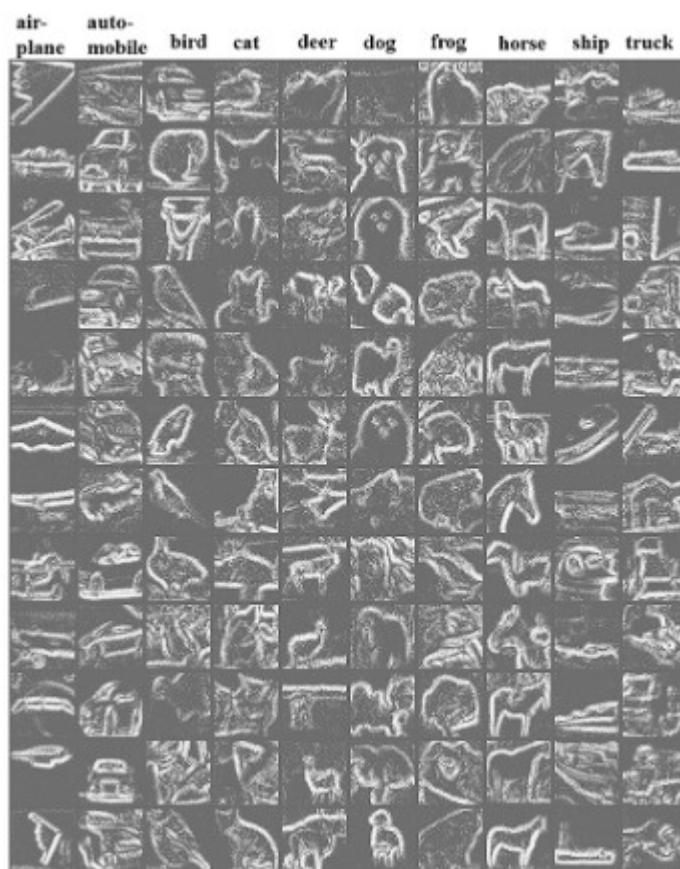 air-
plane
auto-
mobile
bird
cat
deer
dog
frog
horse
ship
truck